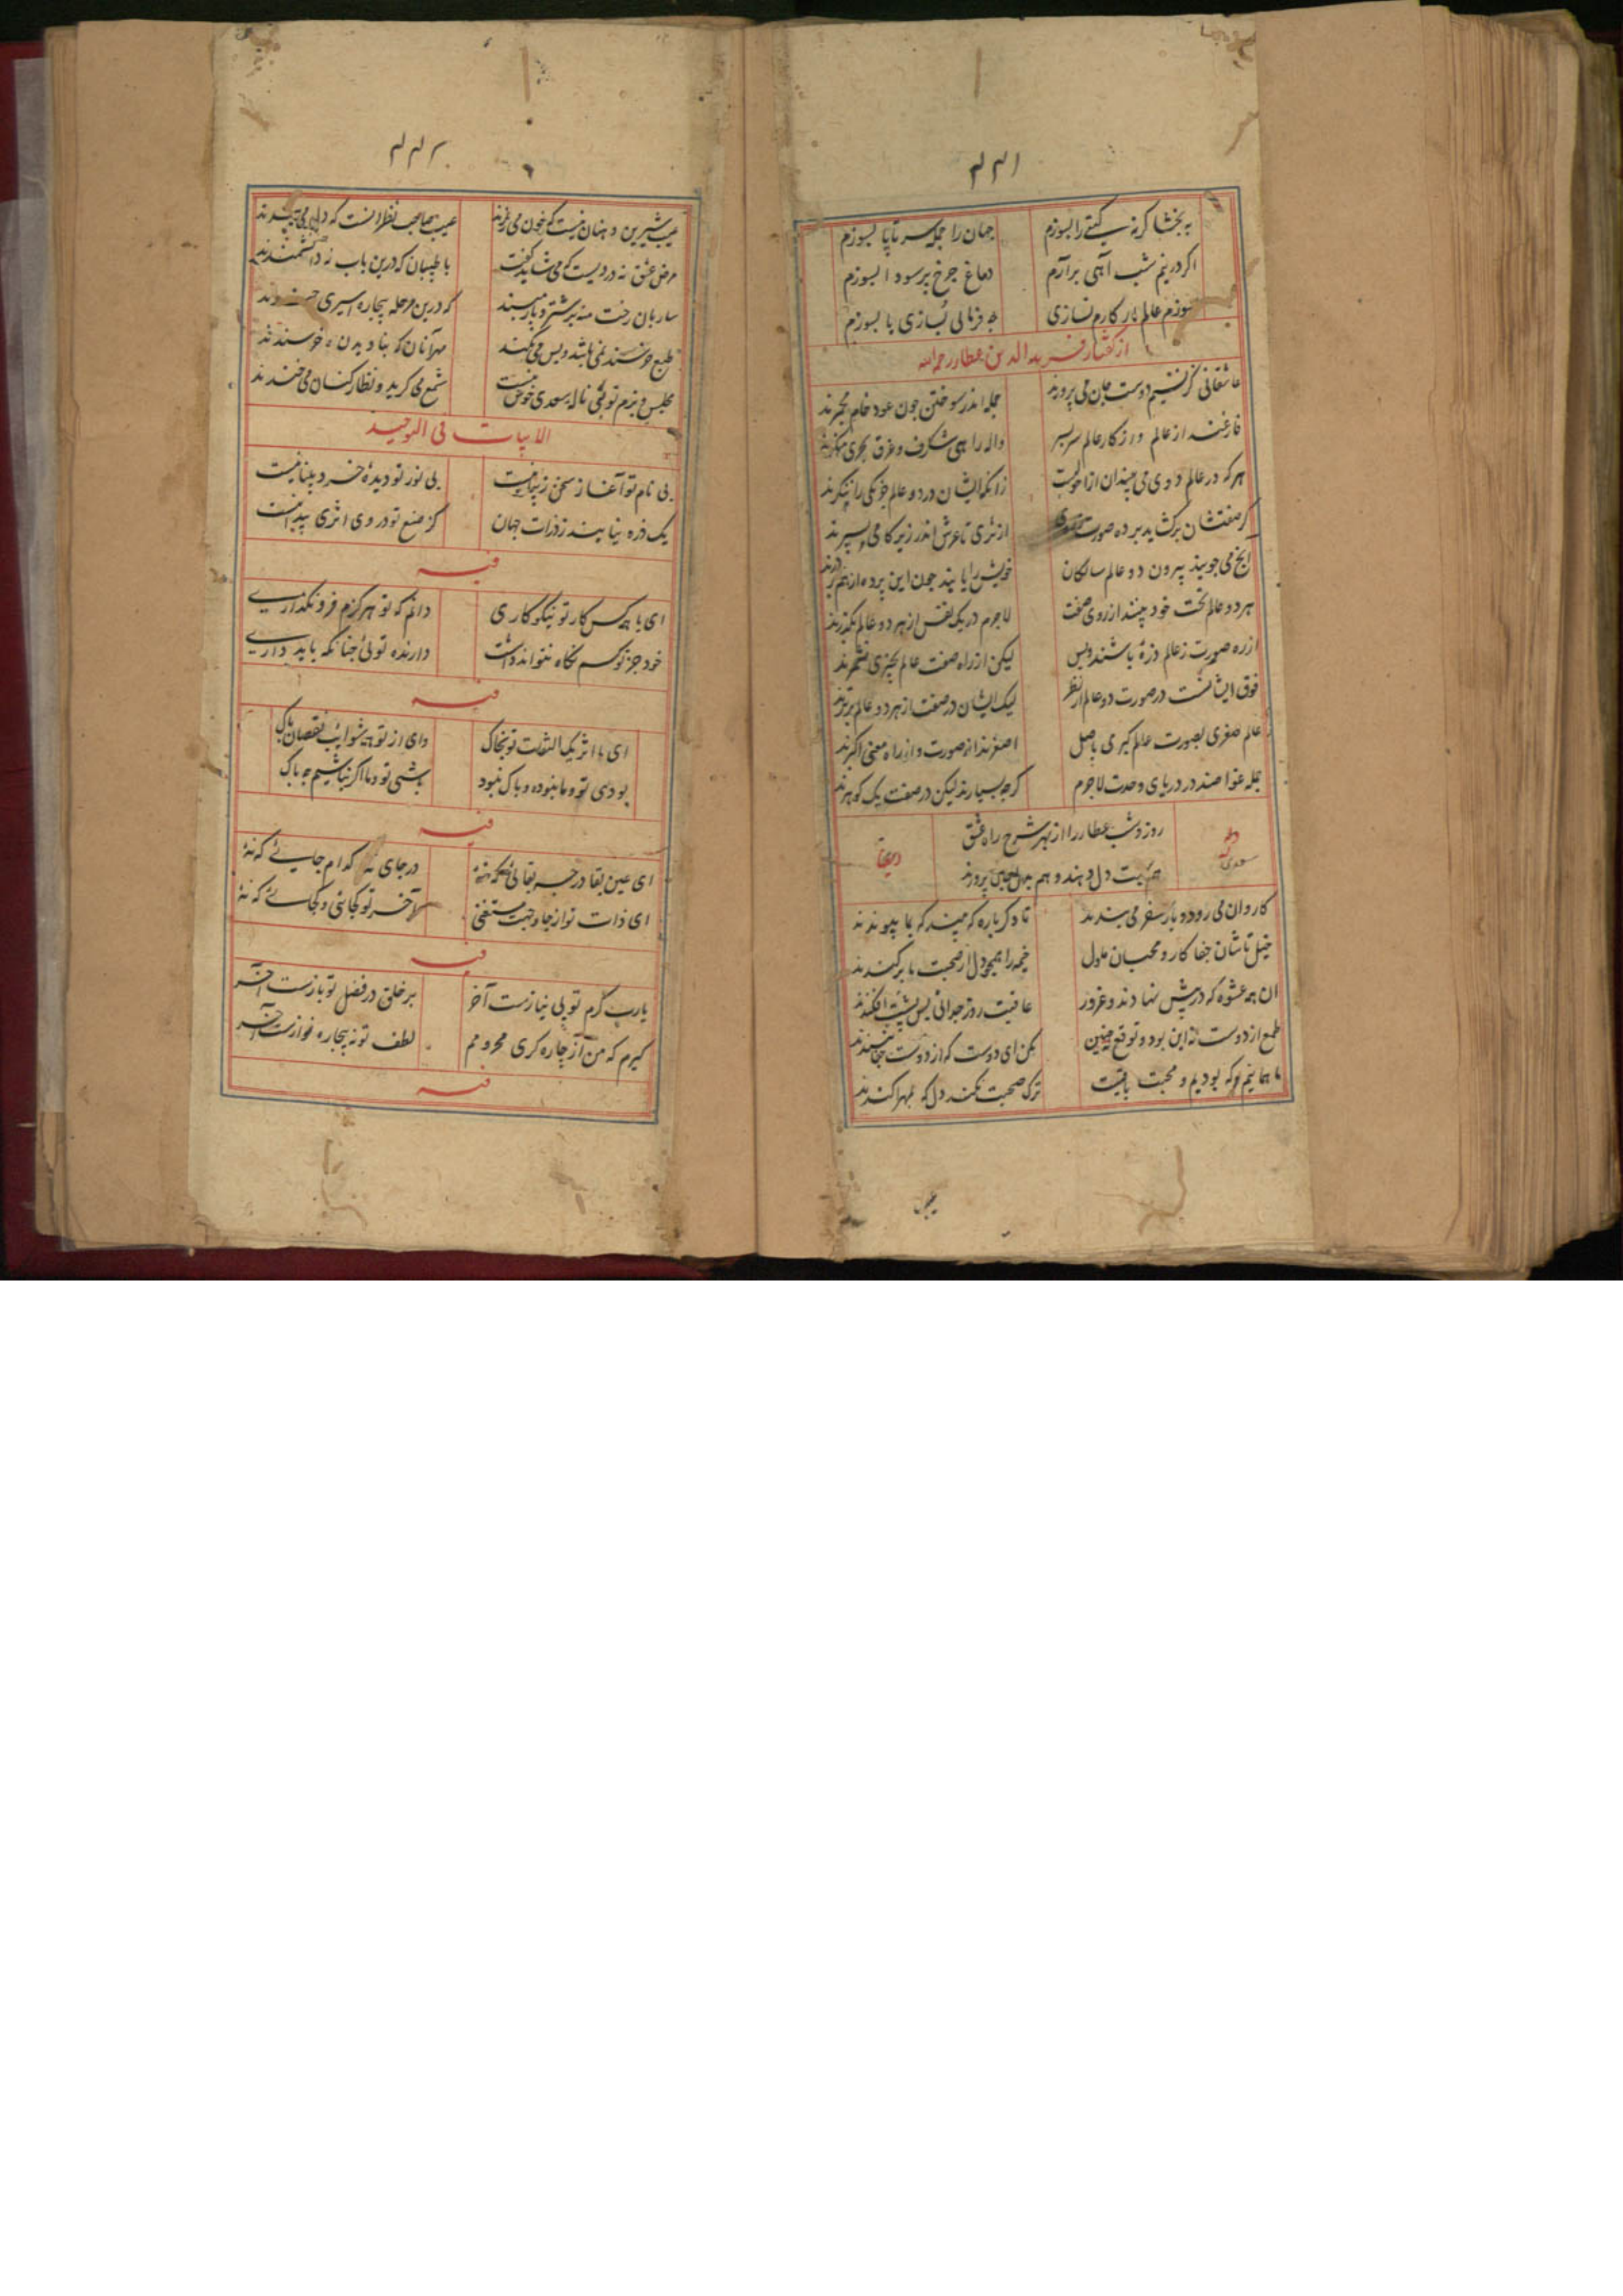 ۲۳۱
به بخشا کرنه کیتے را بسوزم جهان را جمله سر تا پا بسوزم
اکر در نیم شب آهی برآرم دماغ چرخ پر سودا بسوزم
بسوزم عالم ار کارم نسازی چه فرمائی بسازی یا بسوزم
از کفتار فرید الدین عطار رحمه الله
عاشقانی کز نسیم دوست جان می پرورند جمله اندر سوختن چون عود خام مجمرند
فارغند از عالم و از کار عالم سر بسر واله راهی شکرف و غرق بحری منکرند
هر که در عالم دوی می بیند آن از احولیست زانکه ایشان در دو عالم جز یکی را ننکرند
کر صفتشان برکشاید پرده صورت ز روی از ثری تا عرش اندر زیر کامی بسپرند
آنچه می جویند بیرون دو عالم سالکان خویش را یابند چون این پرده از هم بردرند
هر دو عالم تخت خود بینند از روی صفت لاجرم در یک نفس از هر دو عالم بکذرند
از ره صورت ز عالم ذره باشند و بس لیکن از راه صفت عالم بچیزی نشمرند
فوق ایشانست در صورت دو عالم از نظر لیک ایشان در صفت از هر دو عالم برترند
عالم صغری بصورت عالم کبری باصل اصغرند از صورت و از راه معنی اکبرند
جمله غواصند در دریای وحدت لاجرم کرچه بسیارند لیکن در صفت یک کوهرند
روز و شب عطار را از بهر شرح راه عشق
هم بهمت دل دهند و هم بجان پرورند
سعدی
کاروان می رود و بار سفر می بندند تا دکر باره که بیند که بما پیوندند
خیل تاشان جفا کار و محبان ملول خیمه را همچو دل از صحبت ما برکندند
آن همه عشوه که در پیش نهادند و غرور عاقبت روز جدائی پس پشت افکندند
طمع از دوست نه این بود و توقع نه چنین مکن ای دوست که از دوست جفا نپسندند
ما همانیم که بودیم و محبت باقیست ترک صحبت نکند دل که بمهر آکندند
۲۳۲
عیب شیرین دهنان نیست که خون می ریزند عیب صاحب نظرانست که دل می بندند
مرض عشق نه دردیست که می شاید کفت با طبیبان که درین باب نه دانشمندند
ساربان رخت منه بر شتر و بار مبند که درین مرحله بیچاره اسیری چندند
طبع خرسند نمی باشد و بس می نکند مهر آنان که بنادیدن ما خرسندند
مجلس و بزم توئی ناله سعدی خوش نیست شمع می کرید و نظارکنان می خندند
الابیات فی التوحید
بی نام تو آغاز سخن زیبا نیست بی نور تو دیدهٔ خرد بینا نیست
یک ذره نیابند ز ذرات جهان کز صنع تو در وی اثری پیدا نیست
فیه
ای با همه کس کار تو نیکو کاری دانم که تو هرکزم فرو نکذاری
خود جز تو کسم نکاه نتواند داشت دارنده توئی چنانکه باید داری
فیه
ای با اثر یک التفات تو بخاک وای از تو همه شوایب نقصان پاک
بودی تو و ما نبوده و باک نبود باشی تو و ما اکر نباشیم چه باک
فیه
ای عین بقا در چه بقائی که نهٔ در جای نه کدام جایے که نهٔ
ای ذات تو از جا و جهت مستغنی آخر تو کجائی و کجائے که نهٔ
فیه
یارب کرم تو بی نیازست آخر بر خلق در فضل تو بازست آخر
کیرم که من از چاره کری محرومم لطف تو نه بیچاره نوازست آخر
فیه